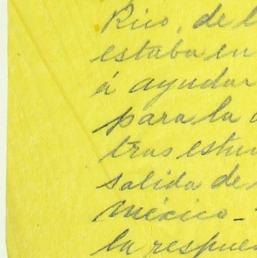 Rico, de l
estaba en
á ayudar
para la
tras estu
salida de
México-
la respue